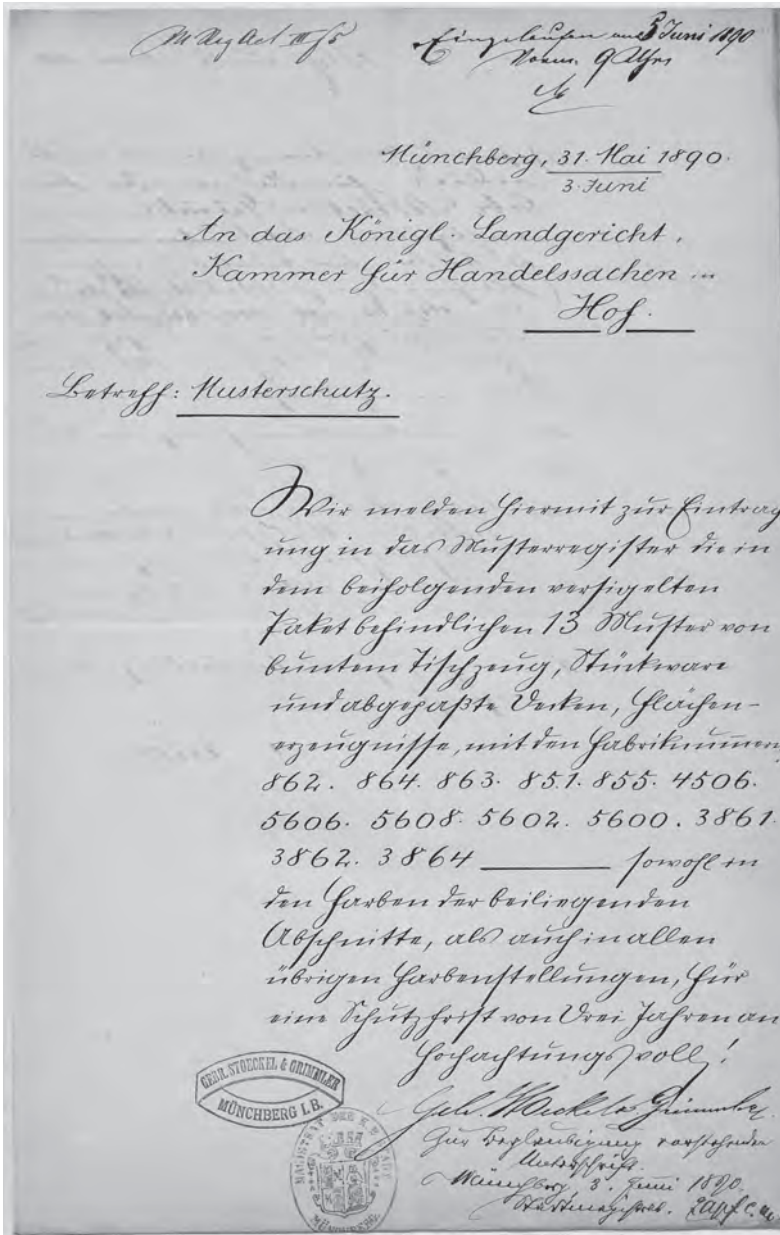 M Reg Act III/5
Eingelaufen am 5 Juni 1890
Vorm. 9 Uhr
Münchberg, 31. Mai 1890.
3. Juni
An das Königl. Landgericht,
Kammer für Handelssachen
Hof.
Betreff: Musterschutz.
Wir melden hiermit zur Eintrag
ung in das Musterregister die in
dem beifolgenden versigelten
Paket befindlichen 13 Muster von
buntem Tischzeug, Stückware
und abgepaßte Decken, Flächen-
erzeugnisse, mit den Fabriknummern
862. 864. 863. 851. 855. 4506.
5606. 5608. 5602. 5600. 3861.
3862. 3864 ______ sowohl in
den Farben der beiliegenden
Abschnitte, als auch in allen
übrigen Farbenstellungen, für
eine Schutzfrist von Drei Jahren an
Hochachtungsvoll!
GEBR. STOECKEL & GRIMMLER
MÜNCHBERG I. B.
Gebr. Stoeckel & Grimmler
MAGISTRAT DER K. B. STADT
MÜNCHBERG.
Zur Beglaubigung vorstehender
Unterschrift.
Münchberg, 3. Juni 1890.
Stadtmagistrat.